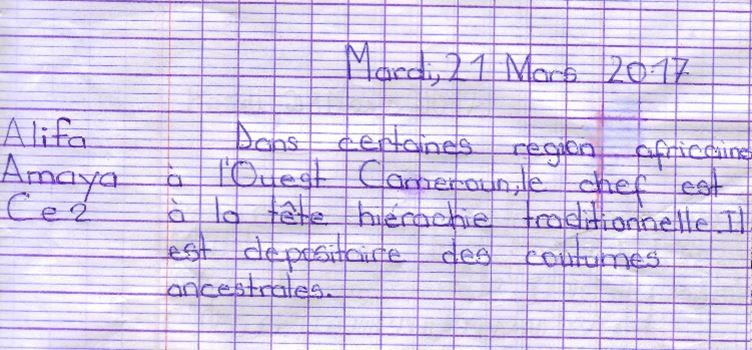 Mardi, 21 Mars 2017
Alifa
Amaya
Ce2
Dans certaines region africaine
à l'Ouest Cameroun, le chef est
à la tête hiérachie traditionnelle. Il
est depositaire des coutumes
ancestrales.